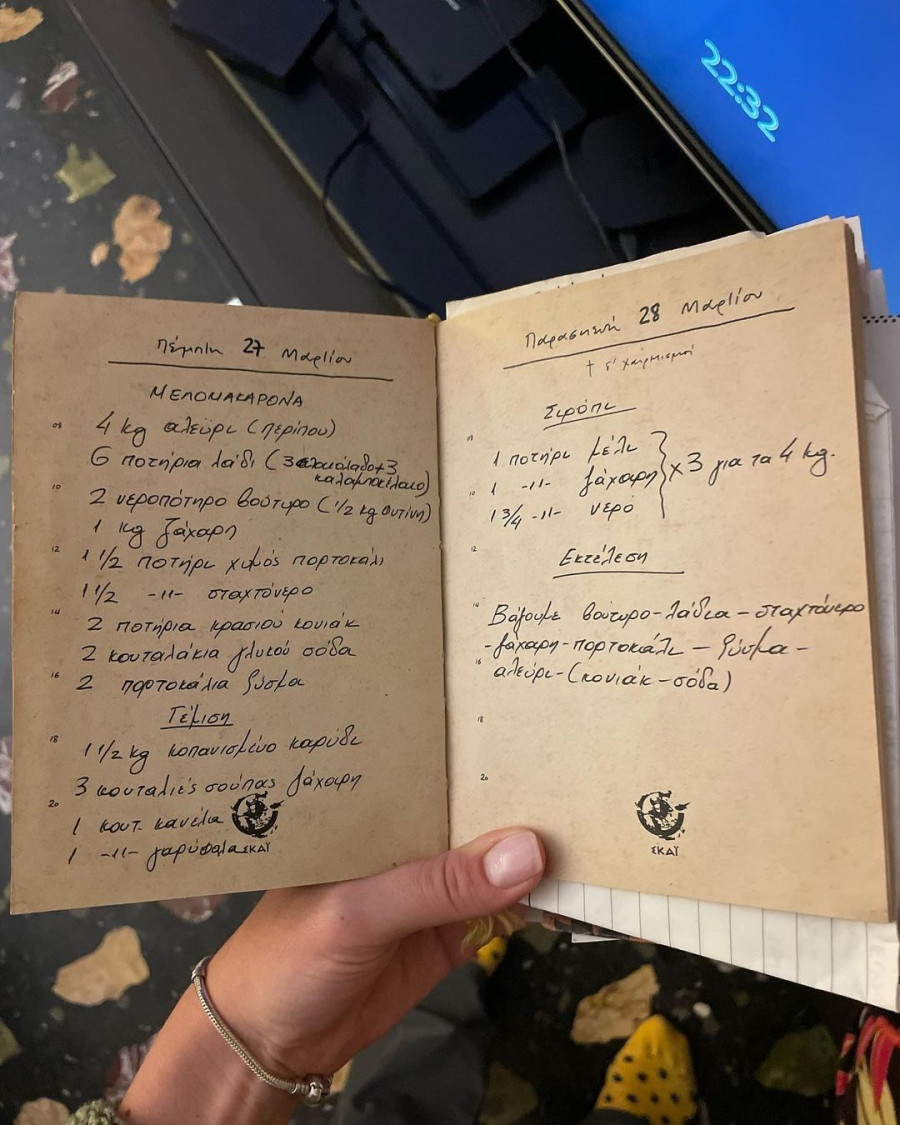 22:32
Πέμπτη 27 Μαρτίου
ΜΕΛΟΜΑΚΑΡΟΝΑ
08
4 kg αλεύρι (περίπου)
6 ποτήρια λάδι (3 ελαιόλαδο + 3
καλαμποκέλαιο)
10
2 νεροπότηρο βούτυρο (1/2 kg φυτίνη)
1 kg ζάχαρη
12
1 1/2 ποτήρι χυμός πορτοκάλι
1 1/2 -//- σταχτόνερο
14
2 ποτήρια κρασιού κονιάκ
2 κουταλάκια γλυκού σόδα
16
2 πορτοκάλια ξύσμα
Γέμιση
18
1 1/2 kg κοπανισμένο καρύδι
3 κουταλιές σούπας ζάχαρη
20
1 κουτ. κανέλα
1 -//- γαρύφαλα
ΣΚΑΪ
Παρασκευή 28 Μαρτίου
† Δ' Χαιρετισμοί
Σιρόπι
08
1 ποτήρι μέλι
10
1 -//- ζάχαρη x3 για τα 4 kg.
1 3/4 -//- νερό
12
Εκτέλεση
14
Βάζουμε βούτυρο - λάδια - σταχτόνερο
- ζάχαρη - πορτοκάλι - ξύσμα -
16
αλεύρι - (κονιάκ - σόδα)
18
20
ΣΚΑΪ